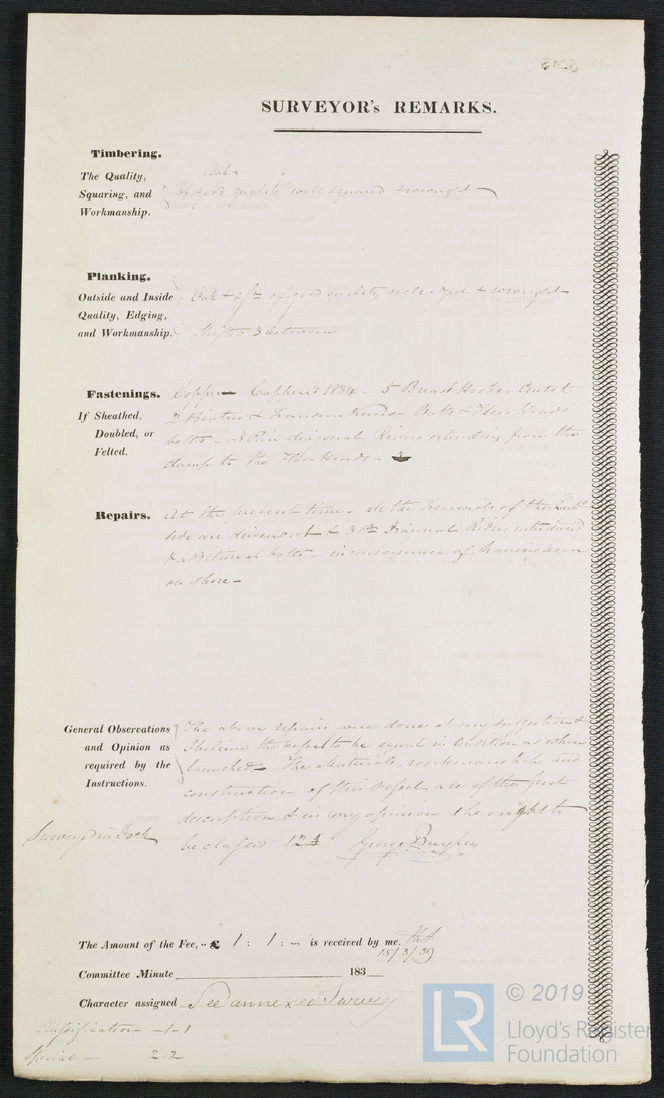 SURVEYOR's REMARKS.
Timbering.
The Quality,
Squaring, and
Workmanship.
Oak
of good quality well squared & wrought
Planking.
Outside and Inside
Quality, Edging,
and Workmanship.
Oak & of good quality well edged & wrought
Butts 3 between
Fastenings.
If Sheathed,
Doubled, or
Felted.
Copper Coppered 1834 - 5 Breast Hooks.
2 Pointers & Transom Knees - Butts & Floor Heads
bolts - 3 Pair diagonal Riders extending from the
clamp to the Floor Heads -
Repairs.
At the present time - all the Treenails of the
side are driven out & 3 Diagonal Riders introduced
& additional bolts - in consequence of having been
on shore -
General Observations
and Opinion as
required by the
Instructions.
The above repairs were done at my suggestion &
I believe the vessel to be equal in condition as when
launched - The Materials, workmanship and
construction of this vessel are of the first
description & in my opinion she ought to
be classed 12A George Bayley
Surveyed in Dock
The Amount of the Fee, £ 1 : 1 : - is received by me.
15/3/39
Committee Minute 183
Character assigned See annexed Survey
Classification - 1-1
Special - 2.2
LR © 2019
Lloyd's Register
Foundation